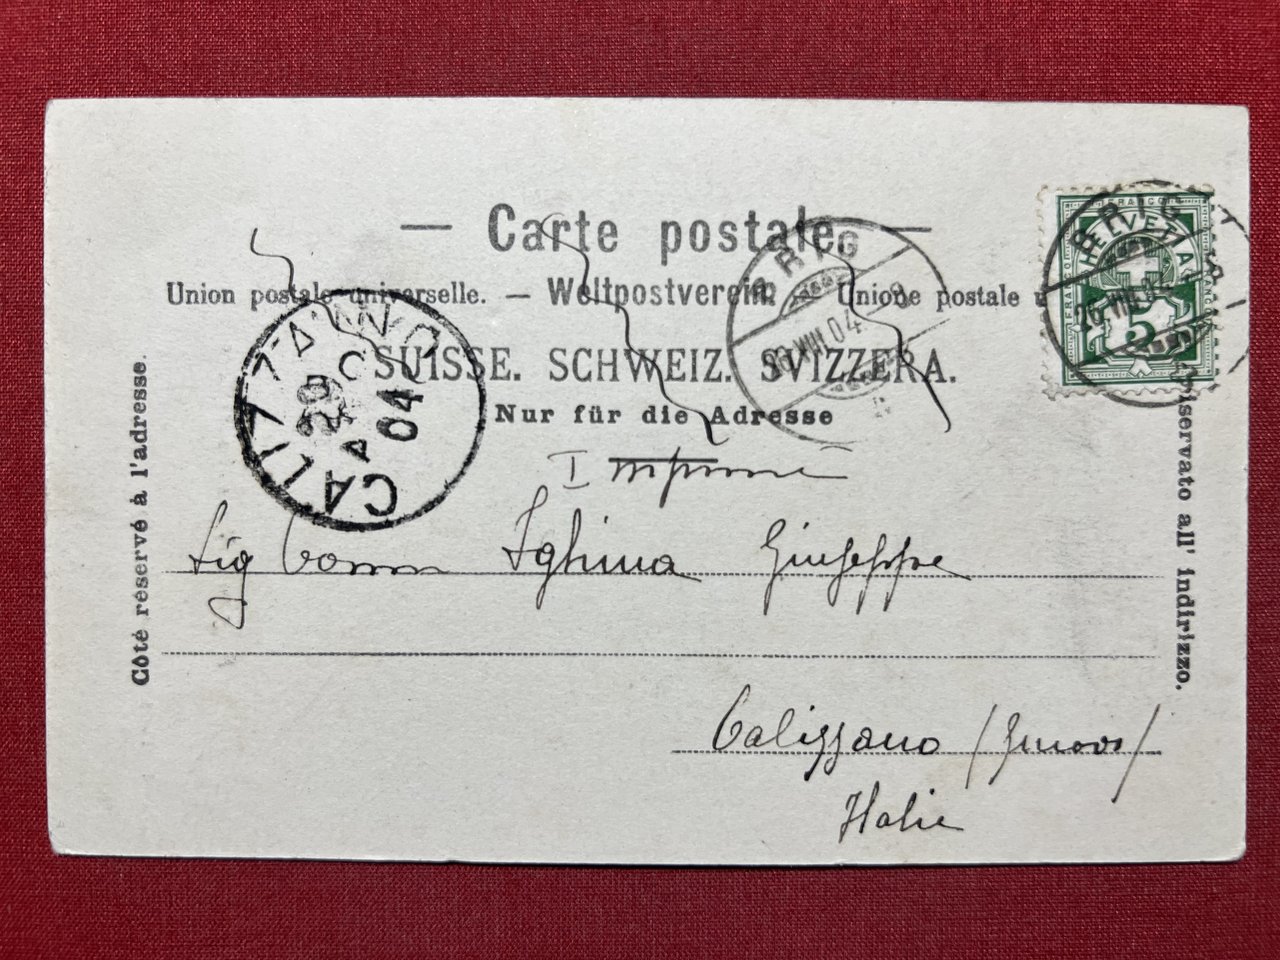 — Carte postale. —
Union postale universelle. — Weltpostverein. — Unione postale u
SUISSE. SCHWEIZ. SVIZZERA.
Nur für die Adresse
Côté reservé à l'adresse.
riservato all' indirizzo.
FRANCO
HELVETIA
5
BRIG
26.VIII.04
BRIG
26.VIII.04
CALIZZANO
29
04
Imprimé
Sig Giuseppe
Calizzano (Genova)
Italie